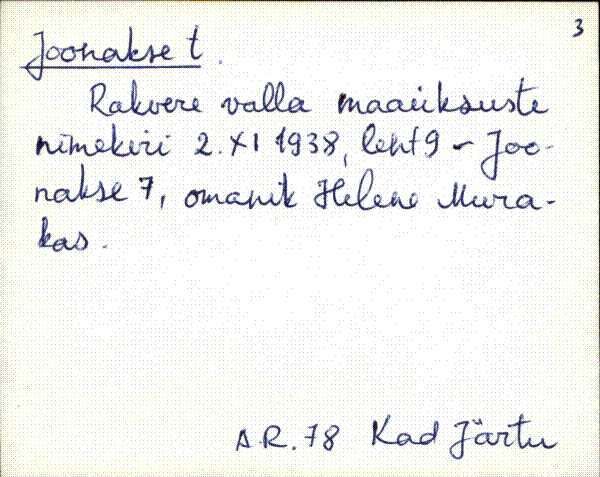 3
Joonakse t.
Rakvere valla maaüksuste
nimekiri 2. XI 1938, leht 9 - Joo-
nakse 7, omanik Helene Mura-
kas.
AR. 78 Kad Järtu